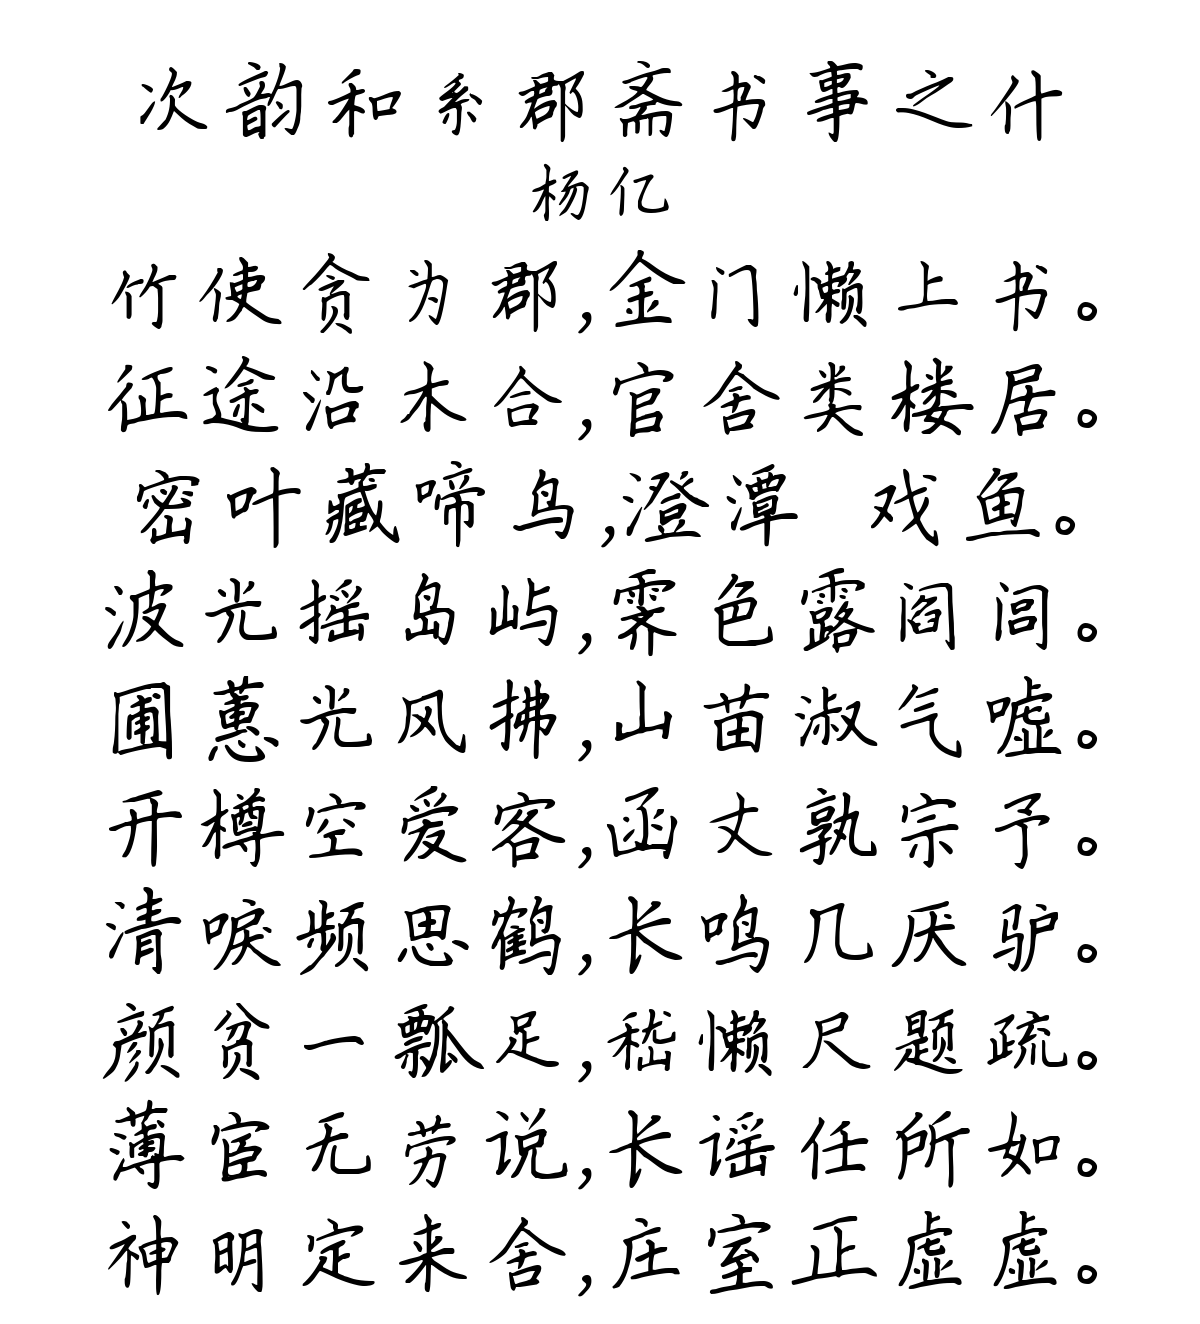 次韵和系郡斋书事之什
杨亿
竹使贪为郡,金门懒上书。
征途沿木合,官舍类楼居。
密叶藏啼鸟,澄潭 戏鱼。
波光摇岛屿,霁色露阎闾。
圃蕙光风拂,山苗淑气嘘。
开樽空爱客,函丈孰宗予。
清唳频思鹤,长鸣几厌驴。
颜贫一瓢足,嵇懒尺题疏。
薄宦无劳说,长谣任所如。
神明定来舍,庄室正虚虚。